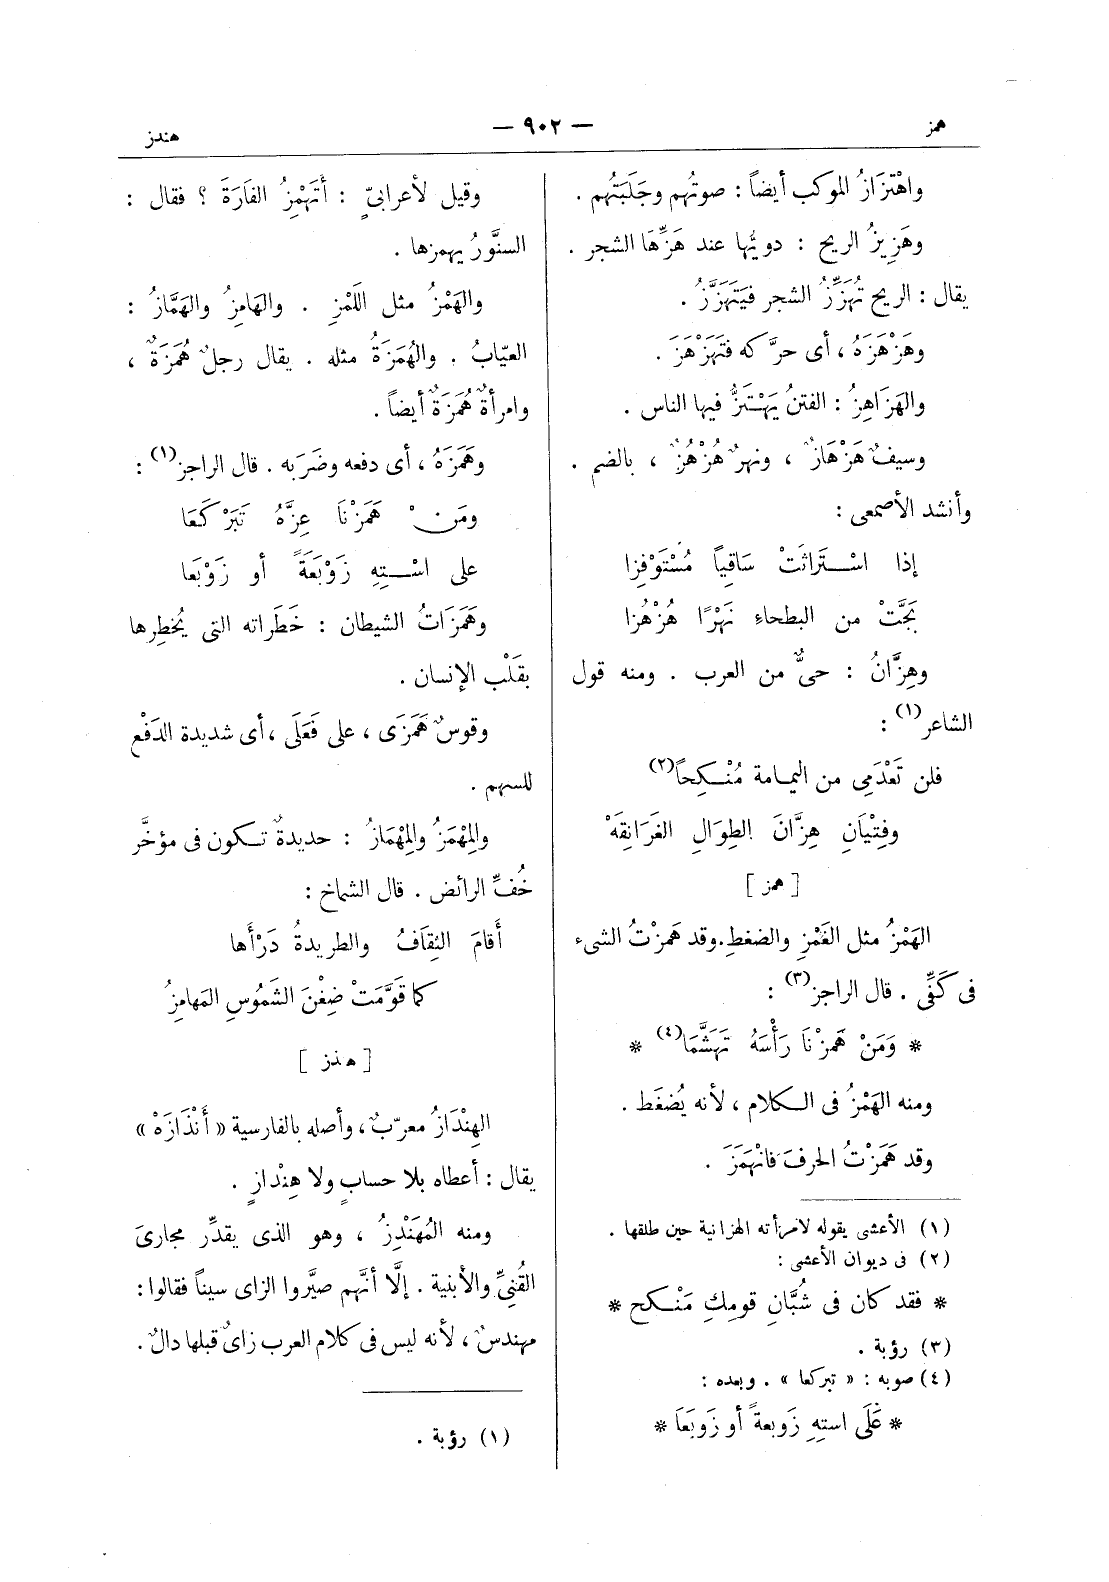 همز
— ٩٠٢ —
هندز
واهْتِزَازُ الموكب أيضاً : صوتُهم وجَلَبَتُهم .
وهَزِيزُ الريح : دويُّها عند هَزِّهَا الشجر .
يقال : الريح تُهَزِّزُ الشجر فيَتَهَزَّزُ .
وهَزْهَزَهُ ، أى حرَّكه فتَهَزْهَزَ .
والهَزَاهِزُ : الفتنُ يَهْتَزُّ فيها الناس .
وسيفٌ هَزْهَازٌ ، ونهرٌ هُزْهُزٌ ، بالضم .
وأنشد الأصمعى :
إذا اسْتَرَاثَتْ سَاقِياً مُسْتَوْفِزا
بَجَّتْ من البطحاءِ نَهْرًا هُزْهُزا
وهِزَّانُ : حىٌّ من العرب . ومنه قول
الشاعر(١) :
فلن تَعْدَمِى من اليمامة مُنْكِحاً(٢)
وفِتْيَانِ هِزَّانَ الطِوَالِ الغَرَانِقَهْ
[ همز ]
الهَمْزُ مثل الغَمْزِ والضغطِ. وقد هَمَزْتُ الشىء
فى كَفِّى . قال الراجز(٣) :
* وَمَنْ هَمَزْنَا رَأْسَهُ تَهَشَّمَا(٤) *
ومنه الهَمْزُ فى الكلام ، لأنه يُضغَط .
وقد هَمَزْتُ الحرفَ فانْهَمَزَ .
(١) الأعشى يقوله لامرأته الهزانية حين طلقها .
(٢) فى ديوان الأعشى :
* فقد كان فى شُبَّانِ قومِكِ مَنْكح *
(٣) رؤبة .
(٤) صوبه : « تبركعا » . وبعده :
* عَلَى استِهِ زَوبعةً أو زَوبَعَا *
وقيل لأعرابىٍّ : أَتَهْمِزُ الفَارَةَ ؟ فقال :
السنَّورُ يهمزها .
والهَمْزُ مثل اللَمْزِ . والهَامِزُ والهَمَّازُ :
العيّابُ . والهُمَزَةُ مثله . يقال رجلٌ هُمَزَةٌ ،
وامرأةٌ هُمَزَةٌ أيضاً .
وهَمَزَهُ ، أى دفعه وضَرَبه . قال الراجز(١) :
ومَن هَمَزْنَا عِزَّهُ تَبَرْكَعَا
على اسْتِهِ زَوْبَعَةً أو زَوْبَعَا
وهَمَزَاتُ الشيطان : خَطَراته التى يُخطِرها
بقَلْب الإنسان .
وقوسٌ هَمَزَى ، على فَعَلَى ، أى شديدة الدَفْع
للسهم .
والمِهْمَزُ والمِهْمَازُ : حديدةٌ تكون فى مؤخَّر
خُفِّ الرائض . قال الشماخ :
أَقامَ الثِقَافُ والطريدةُ دَرْأَها
كما قَوَّمَتْ ضِغْنَ الشَمُوسِ المَهامِزُ
[ هندز ]
الهِنْدَازُ معرّبٌ ، وأصله بالفارسية « أَنْذَازَهْ »
يقال : أعطاه بلا حسابٍ ولا هِنْدازٍ .
ومنه المُهَنْدِزُ ، وهو الذى يقدِّر مجارىَ
القُنِىِّ والأبنية . إلَّا أنَّهم صيَّروا الزاى سيناً فقالوا :
مهندسٌ ، لأنه ليس فى كلام العرب زاىٌ قبلها دالٌ .
(١) رؤبة .